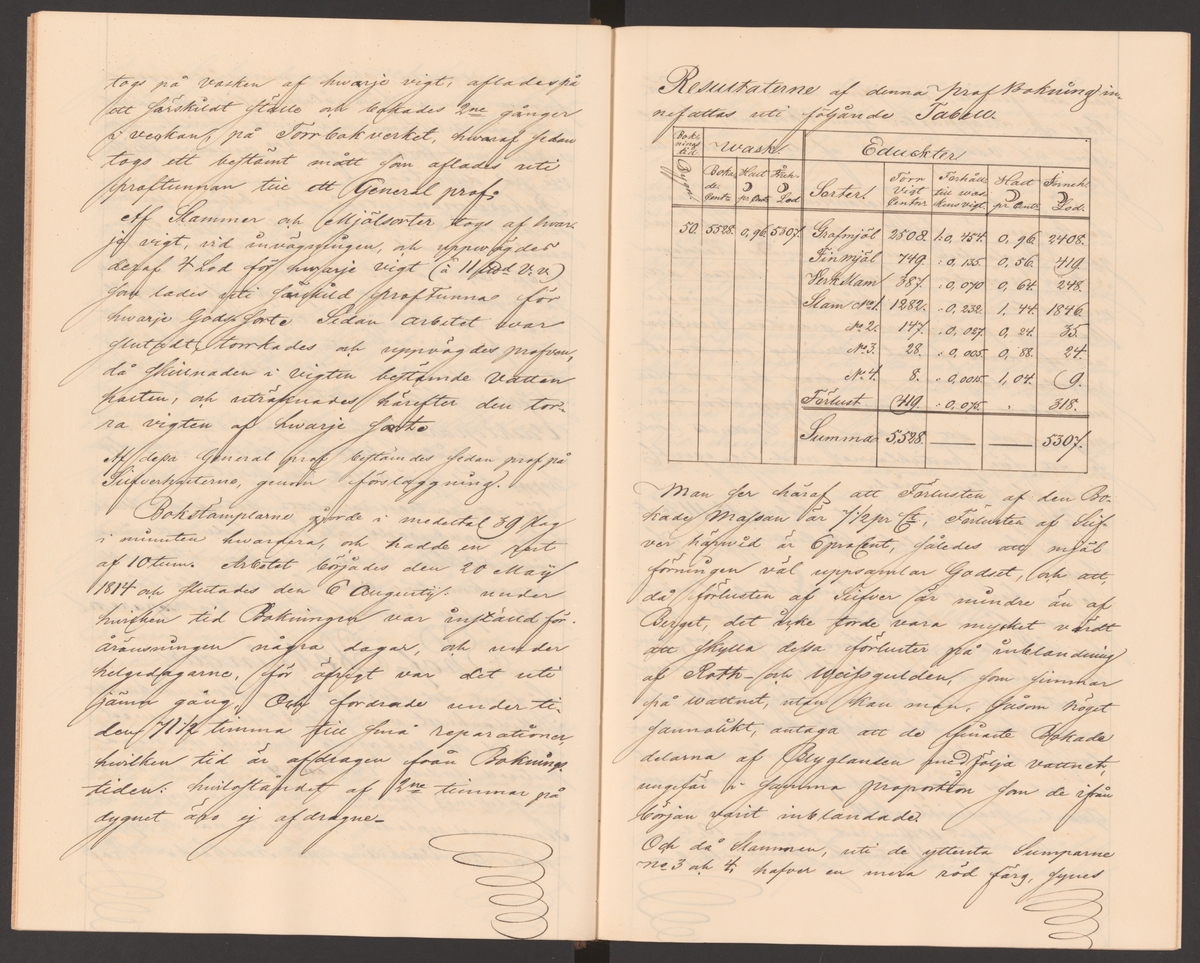 togs på vasken af hwarje vigt, aflades på
ett särskildt ställe och bokades 2ne gånger
i veckan, på Torrbokverket, hwaraf sedan
togs ett bestämt mått som aflades uti
proftunnan till ett General prof.
Af Slammer och Mjölsorter togs af hwar-
je vigt, vid invägningen, och uppwägdes
deraf 4 Lod för hwarje vigt (à 11 Lod V. v.)
som lades uti särskild profTunna för
hwarje Gods sort. Sedan arbetet var
slutadt, torrkades och uppvägdes profven,
då skillnaden i vigten bestämde Vatten
halten, och uträknades härefter den tor-
ra vigten af hwarje sort.
Af dessa General prof bestämdes sedan prof på
Silfverhalterna, genom försläggning.
Bokstämplarne gjorde i medeltal 39 slag
i minuten hwardera, och hade en
af 10 tum. Arbetet börjades den 20 Maÿ
1814 och slutades den 6 Augustÿ. under
hwilken tid Bokningen var inställd för
åränsningen några dagar, och under
helgedagarne, för öfrigt var det uti
jämn gång. Och fordrade under ti-
den 71 1/2 timma till små reparationer,
hvilken tid är afdragen från Boknings
tiden: hwiloståndet af 2ne timmar på
dygnet äro ej afdragne.
Resultaterne af denna prof Bokning in-
nefattas uti följande Tabell.
Bok-
nings
tid Wask. Educkter
Dygn. Boka-
de.
Centr. Halt
pr. Centr. Inneh.
Lod Sorter. Torr
Vigt
Centner Förhåll.
till was-
kens vigt. Halt
pr. Centn. Inneh.
Lod.
50. 5528. 0,96. 5307. Grofmjöl 2508. 1:0,454. 0,96. 2408.
Finmjöl 749. :0,135. 0,56. 419.
VerkSlam 387. :0,070 0,64. 248.
Slam No 1. 1282. :0,232. 1,44. 1846.
No 2. 147. :0,027. 0,24. 35.
No 3. 28. :0,005. 0,88. 24.
No 4. 8. :0,0015. 1,04. 9.
Förlust 419. :0,075. " 318.
Summa 5528. — — 5307.
Man ser häraf att Förlusten af den Bo-
kade Massan är 7 1/2 pr Ct, Förlusten af Silf-
ver härwid är 6 proCent, således att mjöl
förningen väl uppsamlar Godset, och att
då förlusten af Silfver är mindre än af
Berget, det icke torde vara mycket värdt
att skylla dessa förluster på inblandning
af Roth- och Weissgulden, som simmar
på wattnet, utan kan man, såsom högst
sannolikt, antaga att de finaste Bokade
delarna af Blyglansen medfölja vattnet,
ungefär i samma proportion som de ifrån
början varit inblandade.
Och då Slammen, uti de yttersta Sumparne
No 3 och 4, hafver en mera röd färg, synes